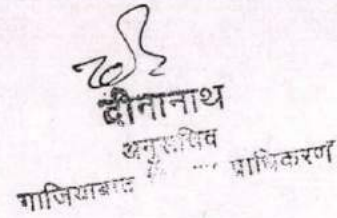 दीनानाथ
अनुसचिव
गाजियाबाद प्राधिकरण